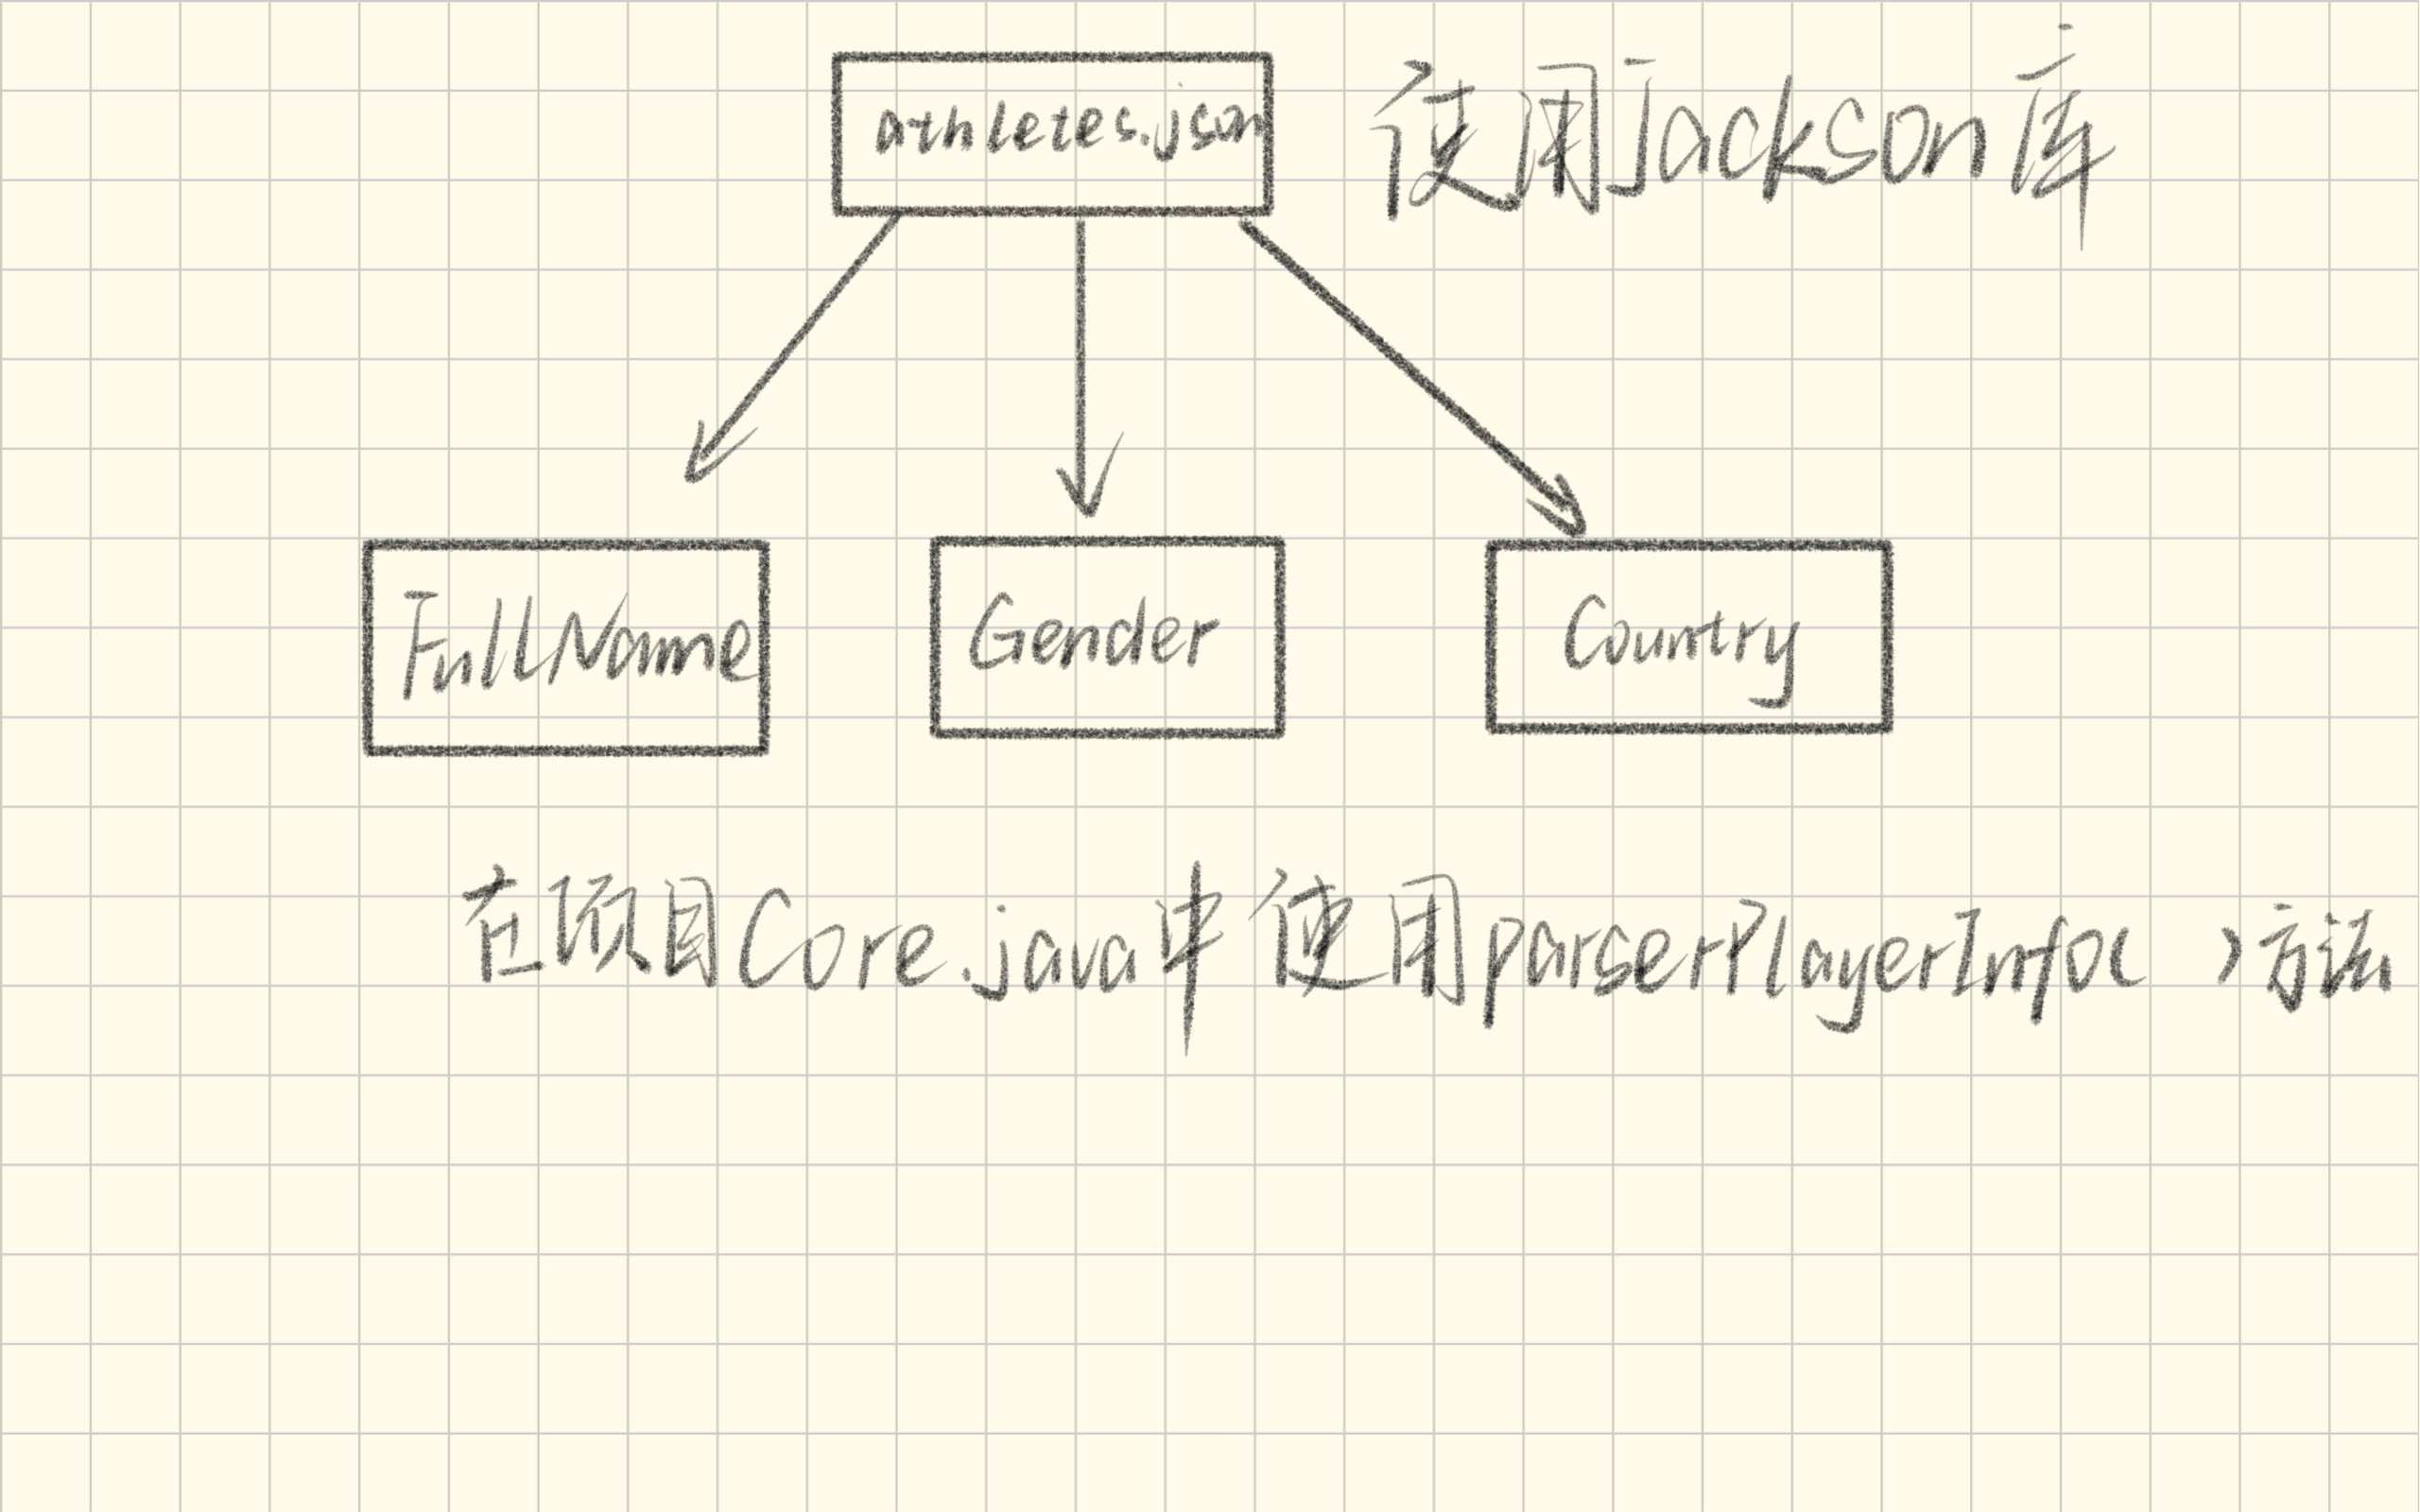 athletes.json 使用jackson库
FullName Gender Country
在项目Core.java中使用parserPlayerInfo( )方法